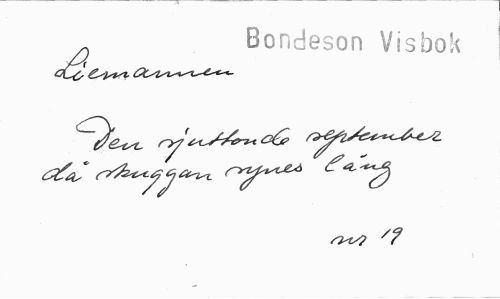 Bondeson Visbok
Liemannen
Den sjuttonde september
då skuggan synes lång
nr 19